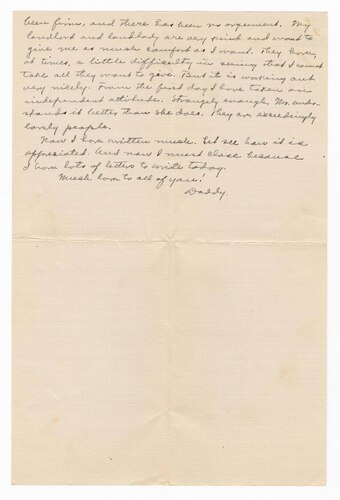 been firm, and there has been no argument. My
landlord and landlady are very kind and want to
give me as much comfort as I want. They have,
at times, a little difficulty in seeing that I cannot
take all they want to give. But it is working out
very nicely. From the first day I have taken an
independent attitude. Strangely enough, Mr. under-
stands it better than she does. They are exceedingly
lovely people.
Now I have written much. Let see how it is
appreciated. And now I must close because
I have lots of letters to write today.
Much love to all of you!
Daddy.